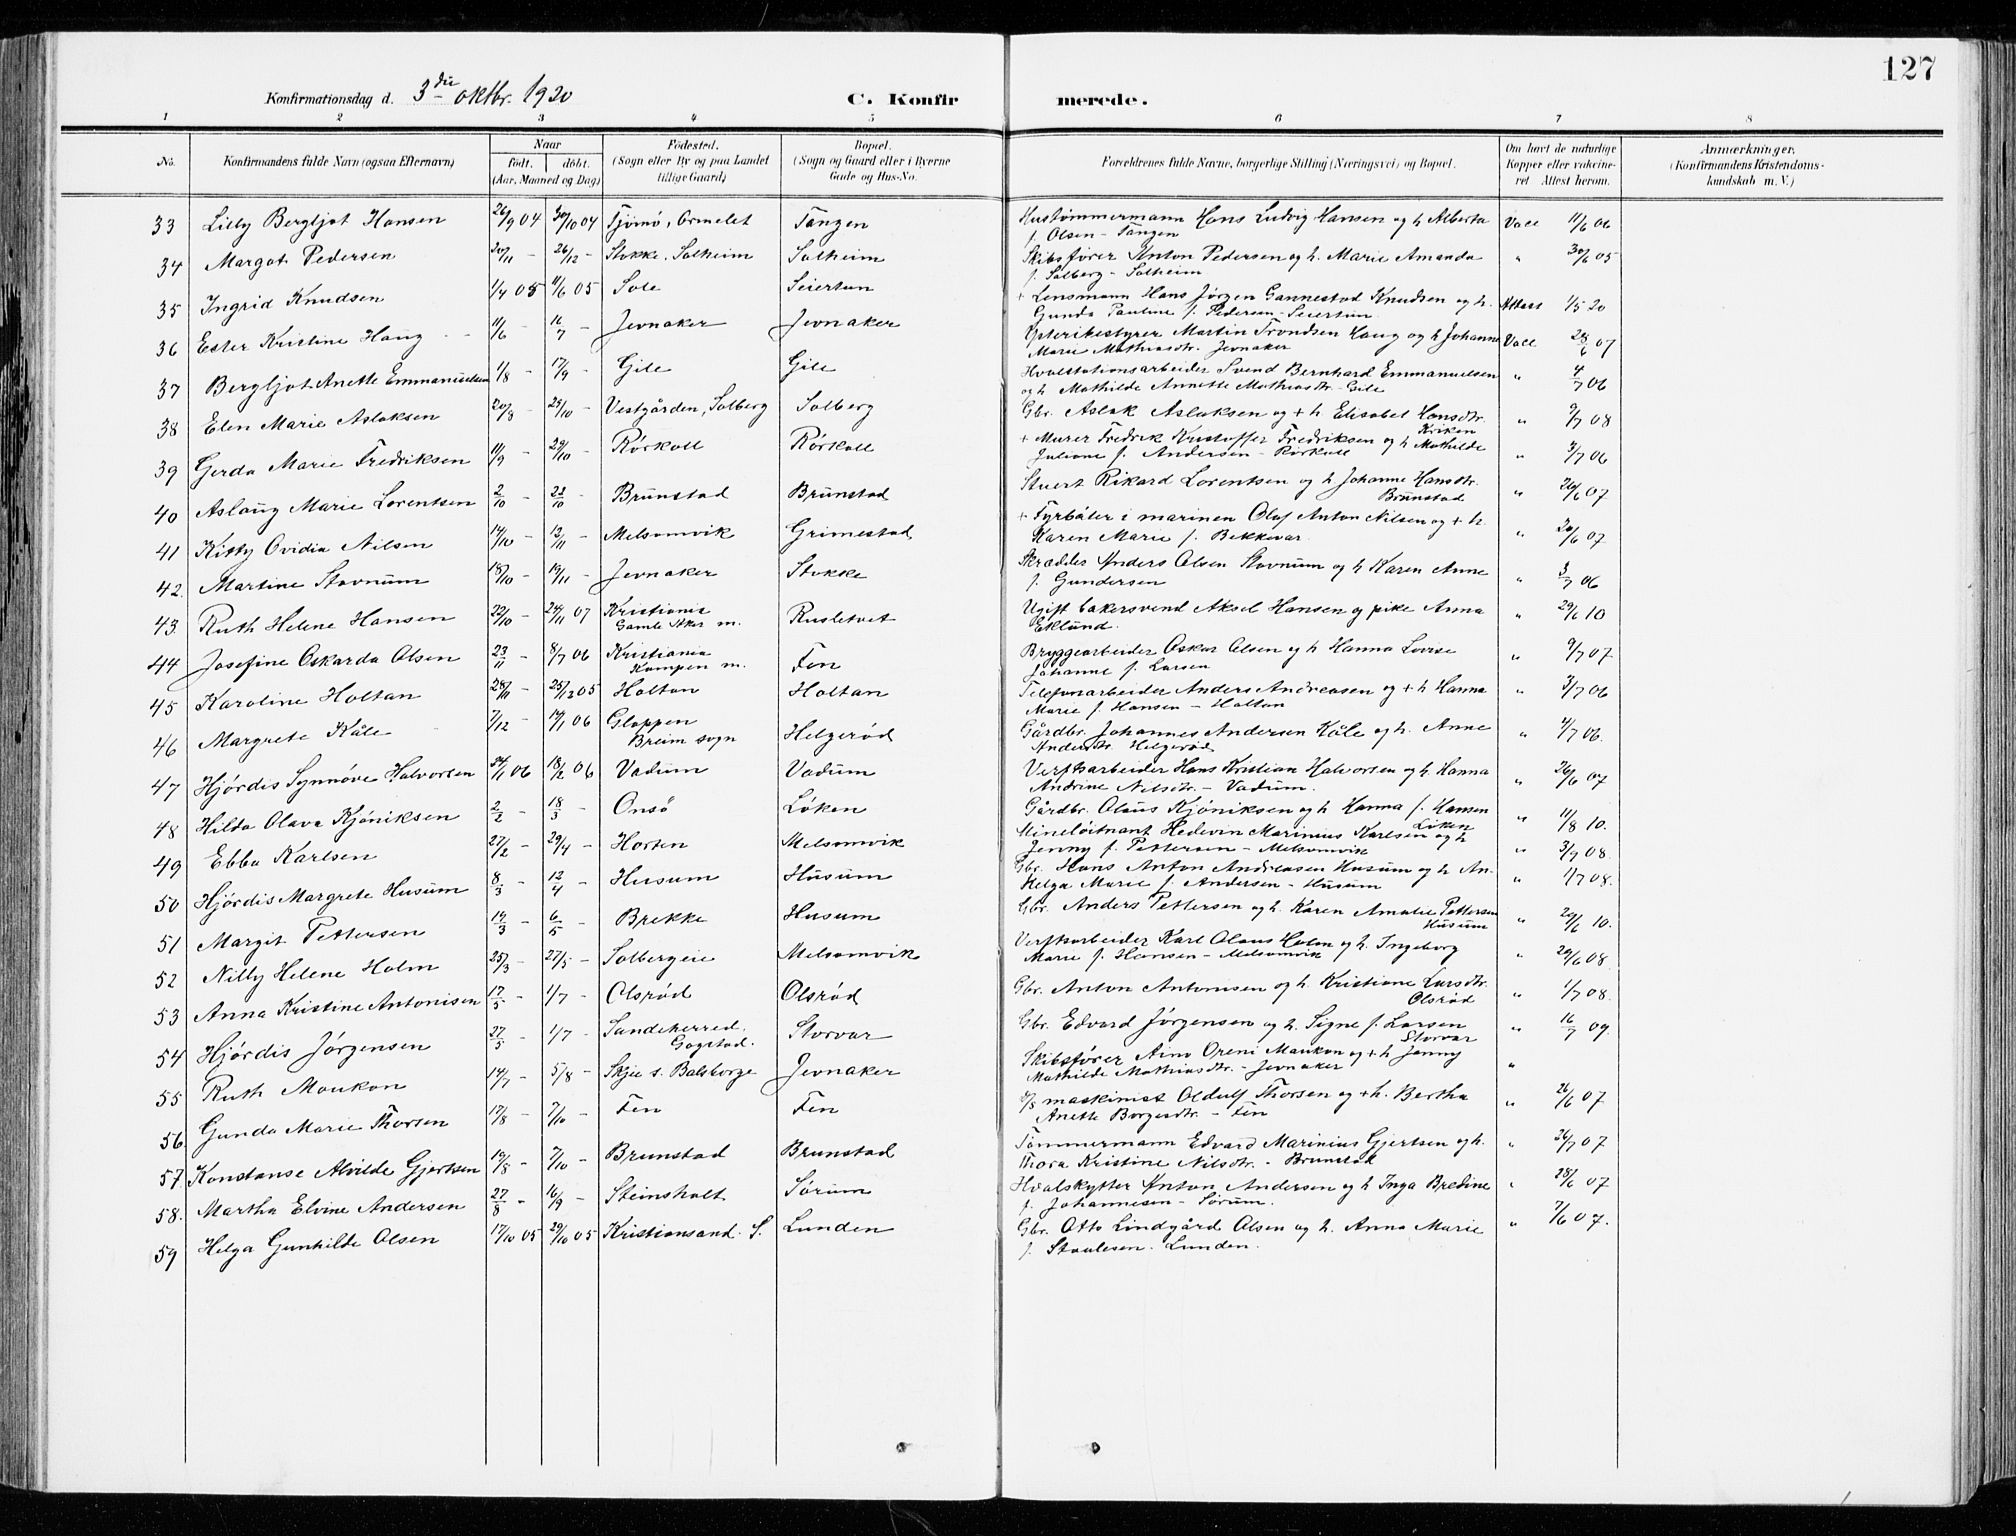 127
Konfirmationsdag d. 3die oktbr. 1920 C. Konfirmerede.
1 2 3 4 5 6 7 8
No. Konfirmandens fulde Navn (ogsaa Efternavn) Naar født. døbt. (Aar, Maaned og Dag) Fødested. (Sogn eller By og paa Landet tillige Gaard) Bopæl. (Sogn og Gaard eller i Byerne Gade og Hus-No. Forældrenes fulde Navne, borgerlige Stilling (Næringsvei) og Bopæl. Om havt de naturlige Kopper eller vaccineret Attest herom. Anmærkninger. (Konfirmandens Kristendomskundskab m. V.)
33 Lilly Bergljot Hansen 26/9 04 30/10 04 Tjømø, Ormelet Tangen Hustømmermann Hans Ludvig Hansen og h Alberta Vacc 11/6 06
f. Olsen - Tangen
34 Margot Pedersen 20/11 - 26/12 - Stokke, Solheim Solheim Skibsfører Anton Pedersen og h. Marie Amanda " 30/6 05
f. Solberg - Solheim
35 Ingrid Knudsen 1/4 05 11/6 05 Sole Seiertun + Lensmann Hans Jørgen Gannestad Knudsen og h. Attest 1/5 20
Gunda Pauline f. Pedersen - Seiertun
36 Ester Kristine Haug 11/6 - 16/7 - Jevnaker Jevnaker Ysterikestyrer Martin Trondsen Haug og h Johanne Vacc 28/6 07
Marie Mathiasdtr. Jevnaker
37 Bergljot Anette Emmanuelsen 1/8 - 17/9 - Gile Gile Hvalstationsarbeider Svend Bernhard Emmanuelsen " 4/7 06
og h Mathilde Annette Mathiasdtr - Gile
38 Elen Marie Aslaksen 20/8 - 25/10 - Vestgården, Solberg Solberg Gbr. Aslak Aslaksen og + h Elisabet Hansdtr. " 9/7 08
Kriken
39 Gerda Marie Fredriksen 11/9 - 29/10 - Rørkoll Rørkoll + Murer Fredrik Kristoffer Fredriksen og h Mathilde " 3/7 06
Juliane f. Andersen - Rørkoll
40 Aslaug Marie Lorentsen 2/10 - 22/10 - Brunstad Brunstad Stuert Rikard Lorentsen og h Johanne Hansdtr. " 26/6 07
Brunstad
41 Kitty Ovidia Nilsen 14/10 - 12/11 - Melsomvik Grimestad + Fyrbøter i marinen Olaf Anton Nilsen og + h. " 20/6 07
Karen Marie f. Bekkevar
42. Martine Stavnum 18/10 - 19/11 - Jevnaker Stokke Skrædder Anders Olsen Stavnum og h Karen Anne " 3/7 06
f. Gundersen
43. Ruth Helene Hansen 22/10 - 24/11 07 Kristiania Rusletvet Ugift bakersvend Aksel Hansen og pike Anna " 29/6 10
Gamle Aker m. Eklund.
44 Josefine Oskarda Olsen 23/11 - 8/7 06 Kristiania Fen Bryggearbeider Oskar Olsen og h Hanna Lovise " 9/7 07
Kampen m. Johanne f. Larsen
45 Karoline Holtan 28/11 - 25/12 05 Holtan Holtan Telefonarbeider Anders Andreasen og + h Hanna " 3/7 06
Marie f. Hansen - Holtan
46 Margrete Kåle 7/12 - 14/1 06 Gloppen Helgerød Gårdbr. Johannes Andersen Kåle og h. Anne " 4/7 06.
Breim sogn Andersdtr. Helgerød
47 Hjørdis Synnøve Halvorsen 24/1 06 18/2 06 Vadum Vadum Verftsarbeider Hans Kristian Halvorsen og h. Hanna " 26/6 07
Andrine Nilsdtr. - Vadum.
48 Hilda Olava Kjøniksen 2/2 - 18/3 - Onsø Løken Gårdbr. Olaus Kjøniksen og h Hanna f. Hansen " 11/8 10.
Løken
49 Ebba Karlsen 27/2 - 29/4 - Horten Melsomvik Mineløitnant Hedevin Marinius Karlsen og h " 3/9 08.
Jenny f. Pettersen - Melsomvik
50 Hjørdis Margrete Husum 8/3 - 12/4 - Husum Husum Gbr. Hans Anton Andreasen Husum og h. An. " 1/7 08.
Helga Marie f. Andersen - Husum
51 Margit Pettersen 19/3 - 6/5 - Brekke Husum Gbr. Anders Pettersen og h. Karen Amalie Pettersen " 29/6 10.
Husum
52 Nilly Helene Holm 25/3 - 27/5 - Solbergeie Melsomvik Verftsarbeider Karl Olaus Holm og h. Ingeborg " 29/6 08.
Marie f. Hansen - Melsomvik
53 Anna Kristine Antonisen 17/5 - 1/7 - Olsrød Olsrød Gbr. Anton Antonisen og h. Kristiane Larsdtr. " 1/7 08.
Olsrød
54 Hjørdis Jørgensen 27/5 - 1/7 - Sandeherred. Storvar Gbr. Edvard Jørgensen og h. Signe f. Larsen " 16/7 09.
Gogstad. Storvar
55 Ruth Moukon 14/7 - 5/8 - Skjee s. Bolsborge Jevnaker Skibsfører Aino Oreni Maukon og + h Jenny "
Mathilde Mathiasdtr. - Jevnaker
56. Gunda Marie Thorsen 17/8 - 7/10 - Fen Fen o/s maskinist Oldulf Thorsen og + h. Bertha " 26/6 07
Anette Borgersdtr. - Fen
57. Konstanse Alvilde Gjertsen 19/8 - 7/10 - Brunstad Brunstad Tømmermann Edvard Marinius Gjertsen og h. " 26/7 07
Thora Kristine Nilsdtr. - Brunstad
58. Martha Elvine Andersen 27/8 - 16/9 - Steinsholt Sørum Hvalskytter Anton Andersen og h Inga Bredine " 28/6 07
f. Johannesen - Sørum.
59 Helga Gunhilde Olsen 17/10 05 29/10 05 Kristiansand. S. Lunden Gbr. Otto Lindgård Olsen og h. Anna Marie " 7/6 07.
f. Staalesen. Lunden.